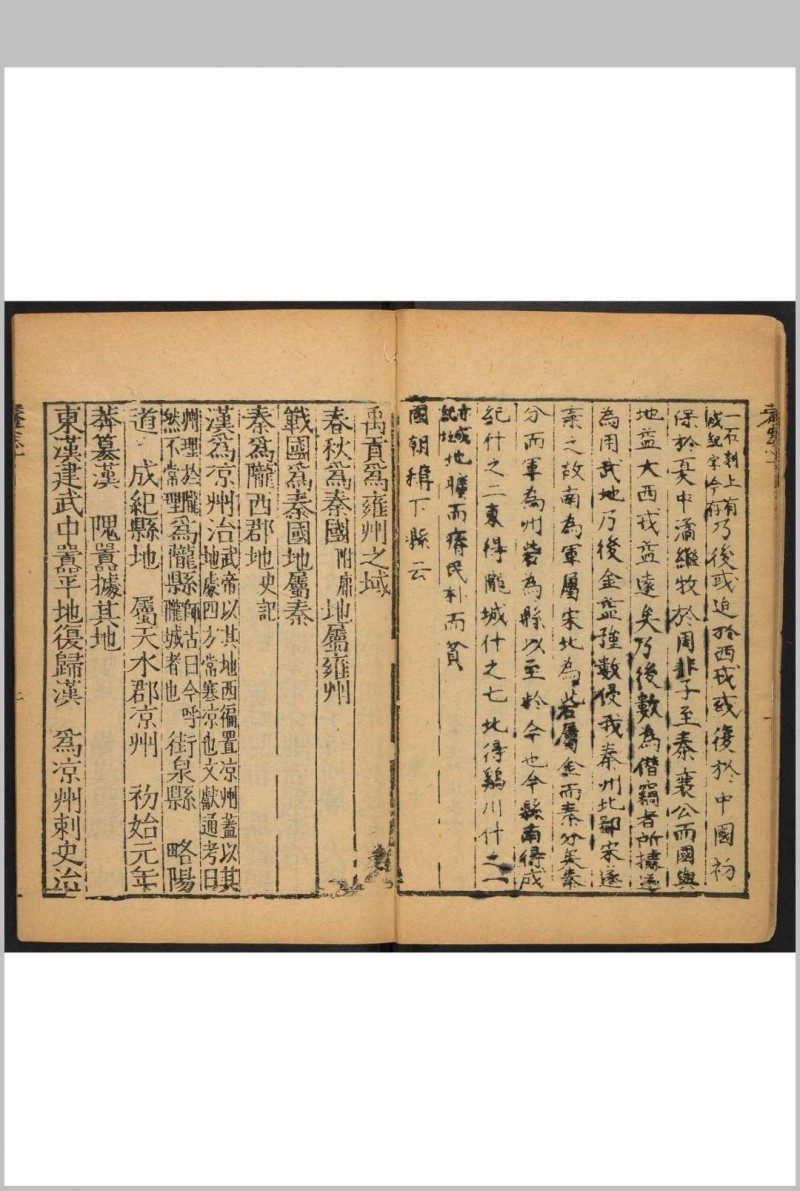 一石刻上有
成紀字今存
乃後或迫於西戎或復於中國初
保於奚中潏繼牧於周非子至秦襄公而國與
地益大西戎益遠矣乃後數為僭竊者所據
為用武地乃後金益強數侵我秦州北鄙宋遂
棄之故南為軍屬宋北為砦屬金而秦分矣秦
分而軍為州砦為縣以至於今也今縣南得成
紀什之二東得隴城什之七北得鷄川什之一
地曠而瘠民朴而貧
國朝稱下縣云
禹貢爲雍州之域
春秋爲秦國附庸地屬雍州
戰國爲秦國地屬秦
秦爲隴西郡地史記
漢爲凉州治武帝以其地西偏置凉州蓋以其
地處四方常寒凉也文獻通考曰
州理於隴
然不常理爲隴縣師古曰今呼
隴城者也街泉縣 略陽
道 成紀縣地 屬天水郡凉州 初始元年
莽簒漢 隗囂據其地
東漢建武中囂平地復歸漢 爲凉州刺史治